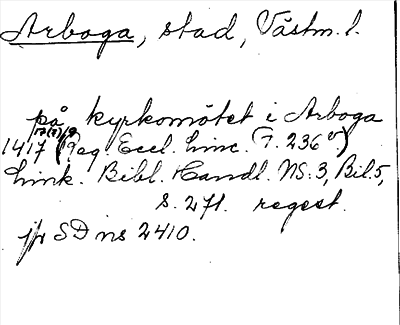 Arboga, stad, Västm. l.
på kyrkomötet i Arboga
1417 17(?)/9 (Reg. Eccl. Linc. f. 236 v)
Link. Bibl. Handl. NS:3, Bil. 5,
s. 271. regest.
jfr SD ns 2410.